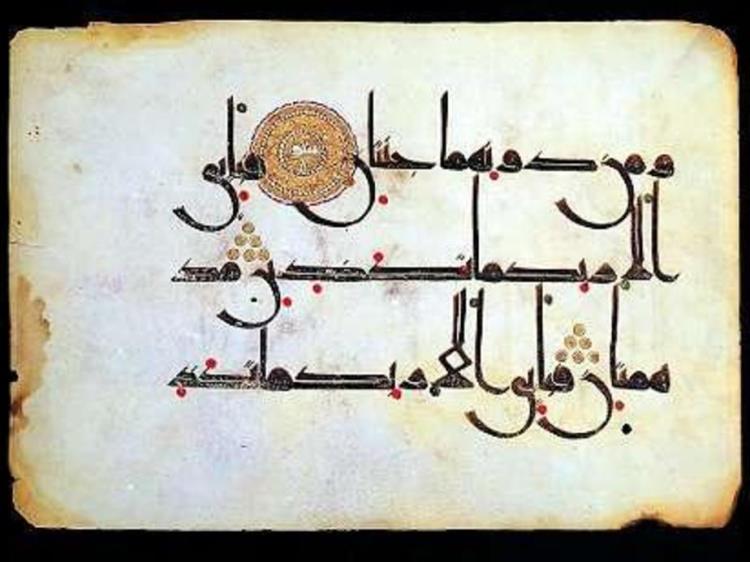 ومن دونهما جنتان فبأي
آلاء ربكما تكذبن مد
هامتان فبأي آلاء ربكما تكذ